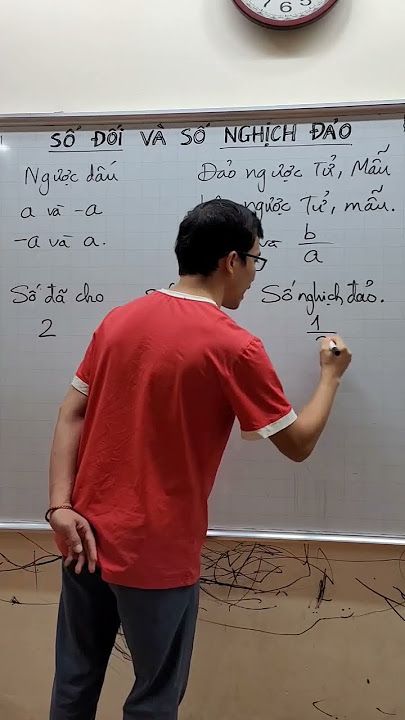 SỐ ĐỐI VÀ SỐ NGHỊCH ĐẢO
Ngược dấu
a và -a
-a và a.
Đảo ngược Tử, Mẫu
ngược Tử, mẫu.
và b/a
Số đã cho
Số nghịch đảo.
2
1
6
5